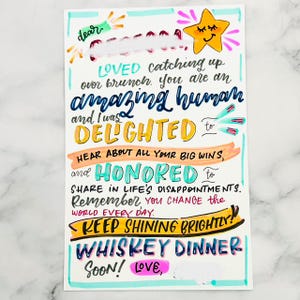 dear
LOVED catching up
over brunch. you are an
amazing human
and I was
DELIGHTED to
HEAR ABOUT ALL YOUR BIG WINS,
and HONORED to
SHARE IN LIFE'S DISAPPOINTMENTS.
Remember YOU CHANGE the
WORLD EVERY DAY.
KEEP SHINING BRIGHTLY!
WHISKEY DINNER
Soon! LOVE,